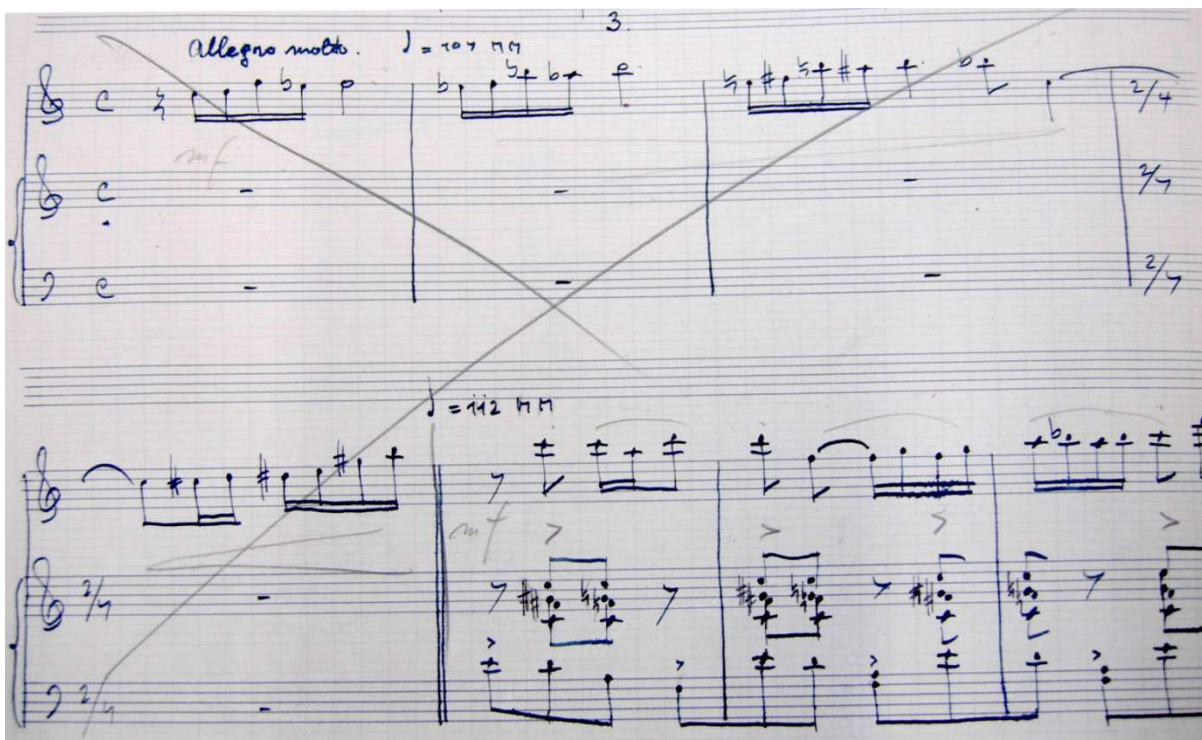 3.
Allegro molto. ♩ = 104 MM
C 2/4
mf
C 2/4
C 2/4
♩ = 112 MM
mf
2/4
2/4